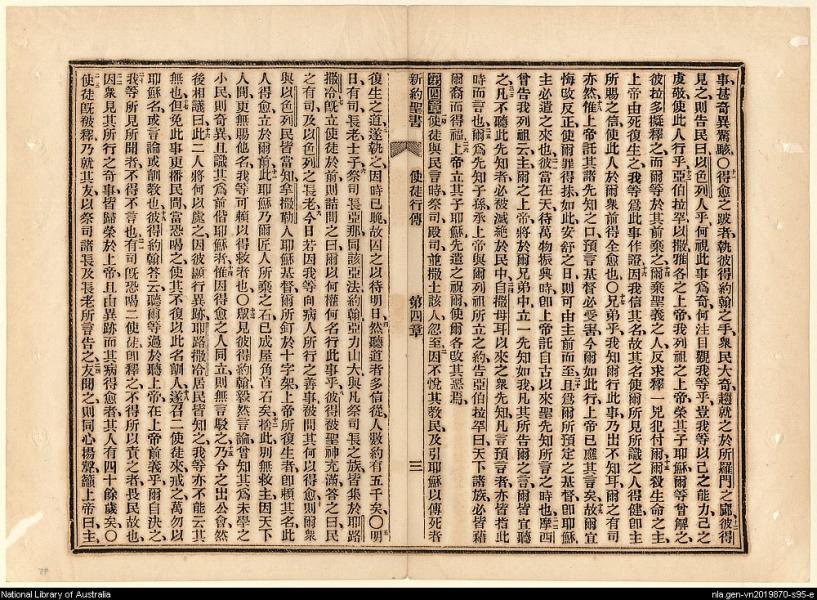 事甚奇異驚駭〇得愈之跛者執彼得約翰之手衆民大奇趨就之於所羅門之廊彼得
見之則告民曰以色列人乎何視此事爲奇何注目觀我等乎豈我等以己之能力己之
虔敬使此人行乎亞伯拉罕以撒雅各之上帝我列祖之上帝榮其子耶穌爾等曾解之
彼拉多擬釋之而爾等於其前棄之爾棄聖義之人反求釋一兇犯付爾爾殺生命之主
上帝由死復生之我等爲此事作證因我信其名故其名使爾所見所識之人得健卽主
所賜之信使此人於爾衆前得全愈也〇兄弟乎我知爾行此事乃出不知耳爾之有司
亦然惟上帝託其諸先知之口預言基督必受害今爾如此行上帝已應其言矣故爾宜
悔改反正使爾罪得抹如此安舒之日則可由主前而至且爲爾所預定之基督卽耶穌
主必遣之來也彼當在天待萬物振興時卽上帝託自古以來聖先知所言之時也摩西
曾告我列祖云主爾之上帝將於爾兄弟中立一先知如我凡其所告爾之言爾皆宜聽
之凡不聽此先知者必被滅絕於民中自撒母耳以來之衆先知凡言預言者亦皆指此
時而言也爾爲先知子孫承上帝與爾列祖所立之約告亞伯拉罕曰天下諸族必皆藉
爾裔而得福上帝立其子耶穌先遣之祝爾使爾各改其惡焉
第四章使徒與民言時祭司殿司並撒土該人忽至因不悅其教民及引耶穌以傳死者
新約聖書 使徒行傳 第四章 三
復生之道遂執之因時已晚故囚之以待明日然聽道者多信從人數約有五千矣〇明
日有司長老士子祭司長亞那同該亞法約翰亞力山大與凡祭司長之族皆集於耶路
撒冷旣立使徒於前則詰問之曰爾以何權何名行此事乎彼得被聖神充滿答之曰民
之有司及以色列之長老今日若因我等向病人所行之善事被問其何以得愈則爾衆
與以色列民皆當知拿撒勒人耶穌基督爾所釘於十字架上帝所復生者卽賴其名此
人得愈立於爾前此耶穌乃爾匠人所棄之石已成屋角首石矣捨此則無救主因天下
人間更無賜他名我等可賴以得救者也〇衆見彼得約翰毅然言論曾知其爲未學之
小民則奇異且識其爲前偕耶穌者惟因得愈之人同立則無言駁之乃令之出公會然
後相議曰此二人將何以處之因彼顯行異跡耶路撒冷居民皆知之我等亦不能云其
無也但免此事更播民間當恐喝之使其不復以此名訓人遂召二使徒來戒之萬勿以
耶穌名或言論或訓教也彼得約翰答云聽爾等過於聽上帝在上帝前義乎爾自決之
我等所見所聞者不得不言也有司旣恐喝二使徒卽釋之不得所以責之者畏民故也
因衆見其所行之奇事皆歸榮於上帝且由異跡而其病得愈者其人有四十餘歲矣〇
使徒旣被釋乃就其友以祭司諸長及長老所言告之友聞之則同心揚聲籲上帝曰主
National Library of Australia
nla.gen-vn2019870-s95-e